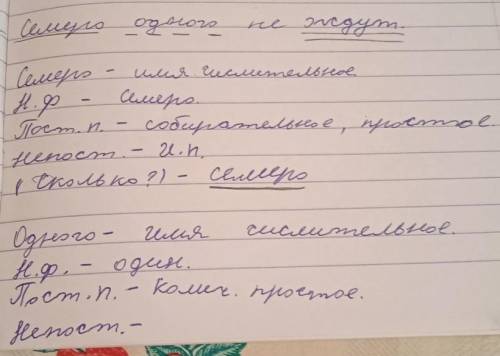 Семеро одного не ждут.
Семеро - имя числительное.
Н.ф - Семеро.
Пост. п. - собирательное, простое.
Непост. - И.п.
(Сколько?) - семеро
Одного - имя числительное.
Н.ф. - один.
Пост. п. - Колич. простое.
Непост. -